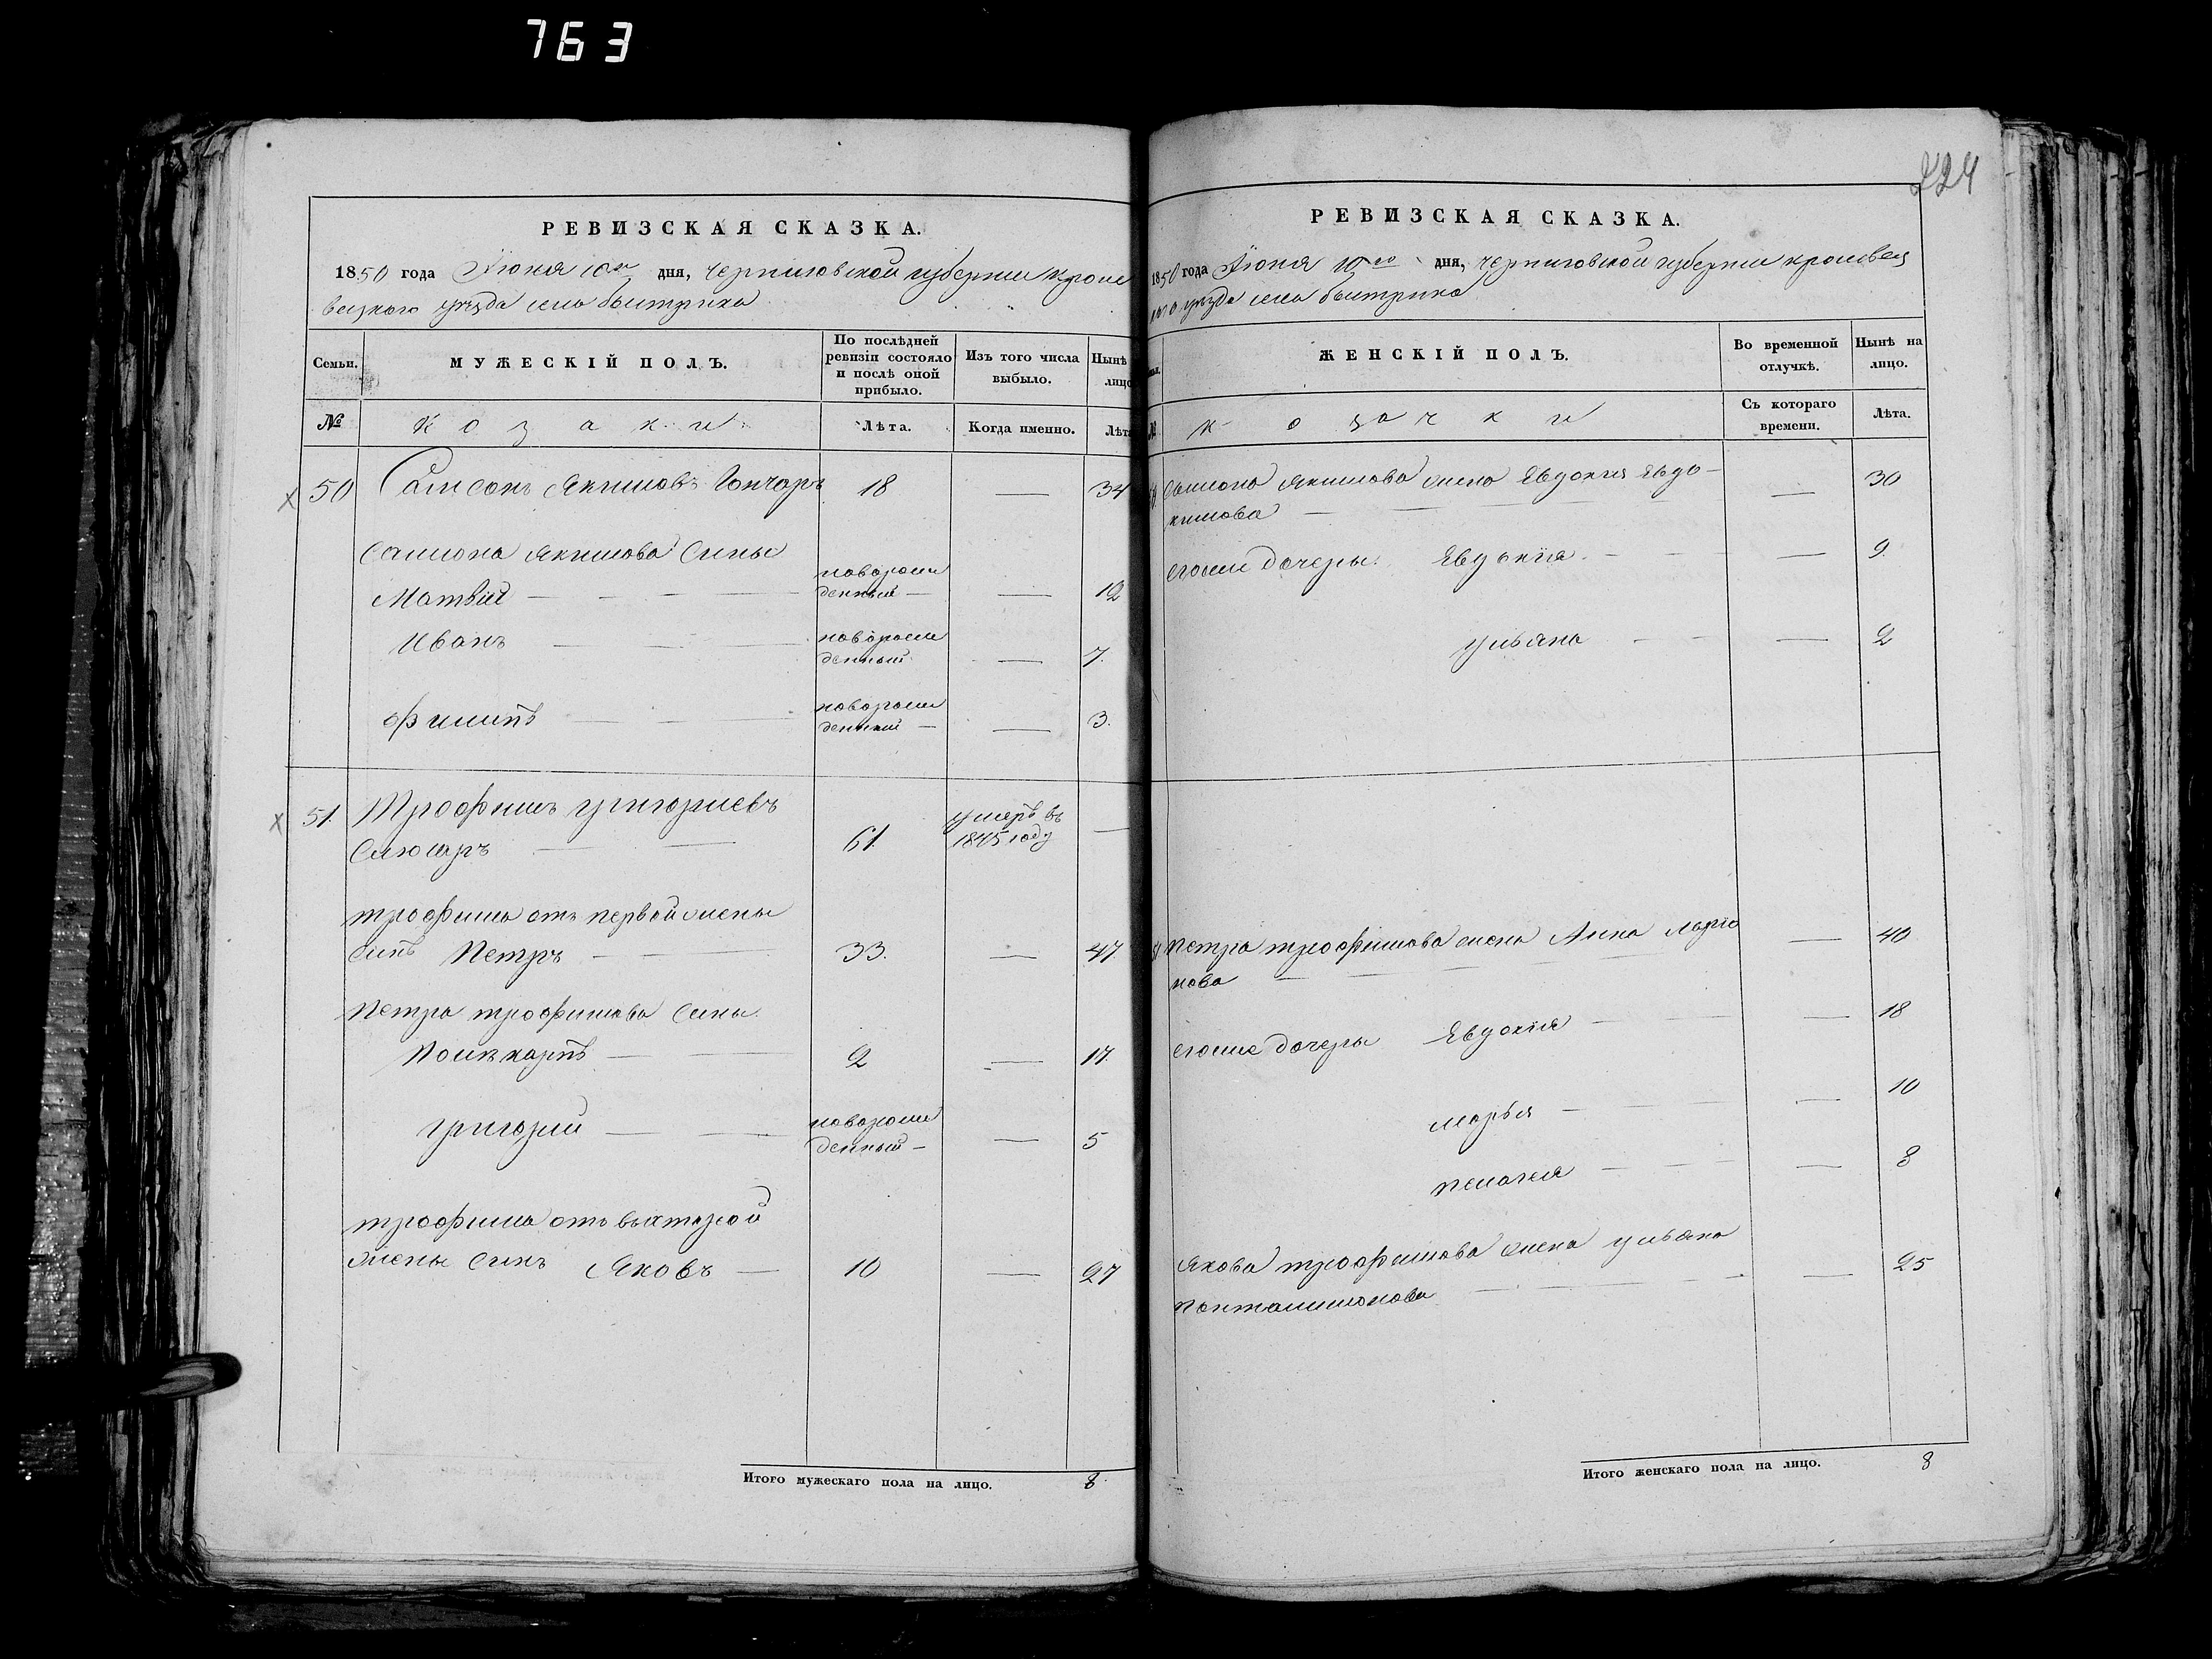 763
РЕВИЗСКАЯ СКАЗКА.
1850 года Іюня 10го дня, Черниговской губерніи Кроле
вецкого уѣзда села быстрика
Семьи.
МУЖЕСКІЙ ПОЛЪ.
По послѣдней
ревизіи состояло
и послѣ оной
прибыло.
Изъ того числа
выбыло.
Нынѣ
лицо
№
козаки
Лѣта.
Когда именно.
Лѣта
50 Самсонъ Якимовъ Гончаръ 18 — 34
Самсона Якимова Сины
Матвій — новорож
денный — — 12
Иванъ — новорож
денный — 7.
филипъ — новорож
денный — — 3.
51. Трофимъ григориевъ
Слюсаръ — 61. умеръ въ
1845 году —
трофима отъ первой жены
синъ Петръ — 33. — 47.
Петра трофимова Сины
Поликарпъ — 2 — 17.
григорий — новорож
денный — — 5
трофима отъ вьяторой
жены Синъ Яковъ — 10 — 27
Итого мужескаго пола на лицо. 8.
224
РЕВИЗСКАЯ СКАЗКА.
1850 года Іюня 10го дня, черниговской губерніи кролевец
кого уѣзда села быстрика
№
ЖЕНСКІЙ ПОЛЪ.
Во временной
отлучкѣ.
Нынѣ на
лицо.
козачки
Съ котораго
времени.
Лѣта.
Самсона Якимова жена Явдокия Явдо-
кимова — — 30
егоже дочеры Явдокія — — 9.
ульяна — — 2
51 Петра трофимова жена Анна Ларио
нова — — 40
егоже дочеры Явдокія — — 18
марья — — 10
пелагея — — 8
Якова трофимова жена ульяна
панталимонова — — 25
Итого женскаго пола на лицо. 8